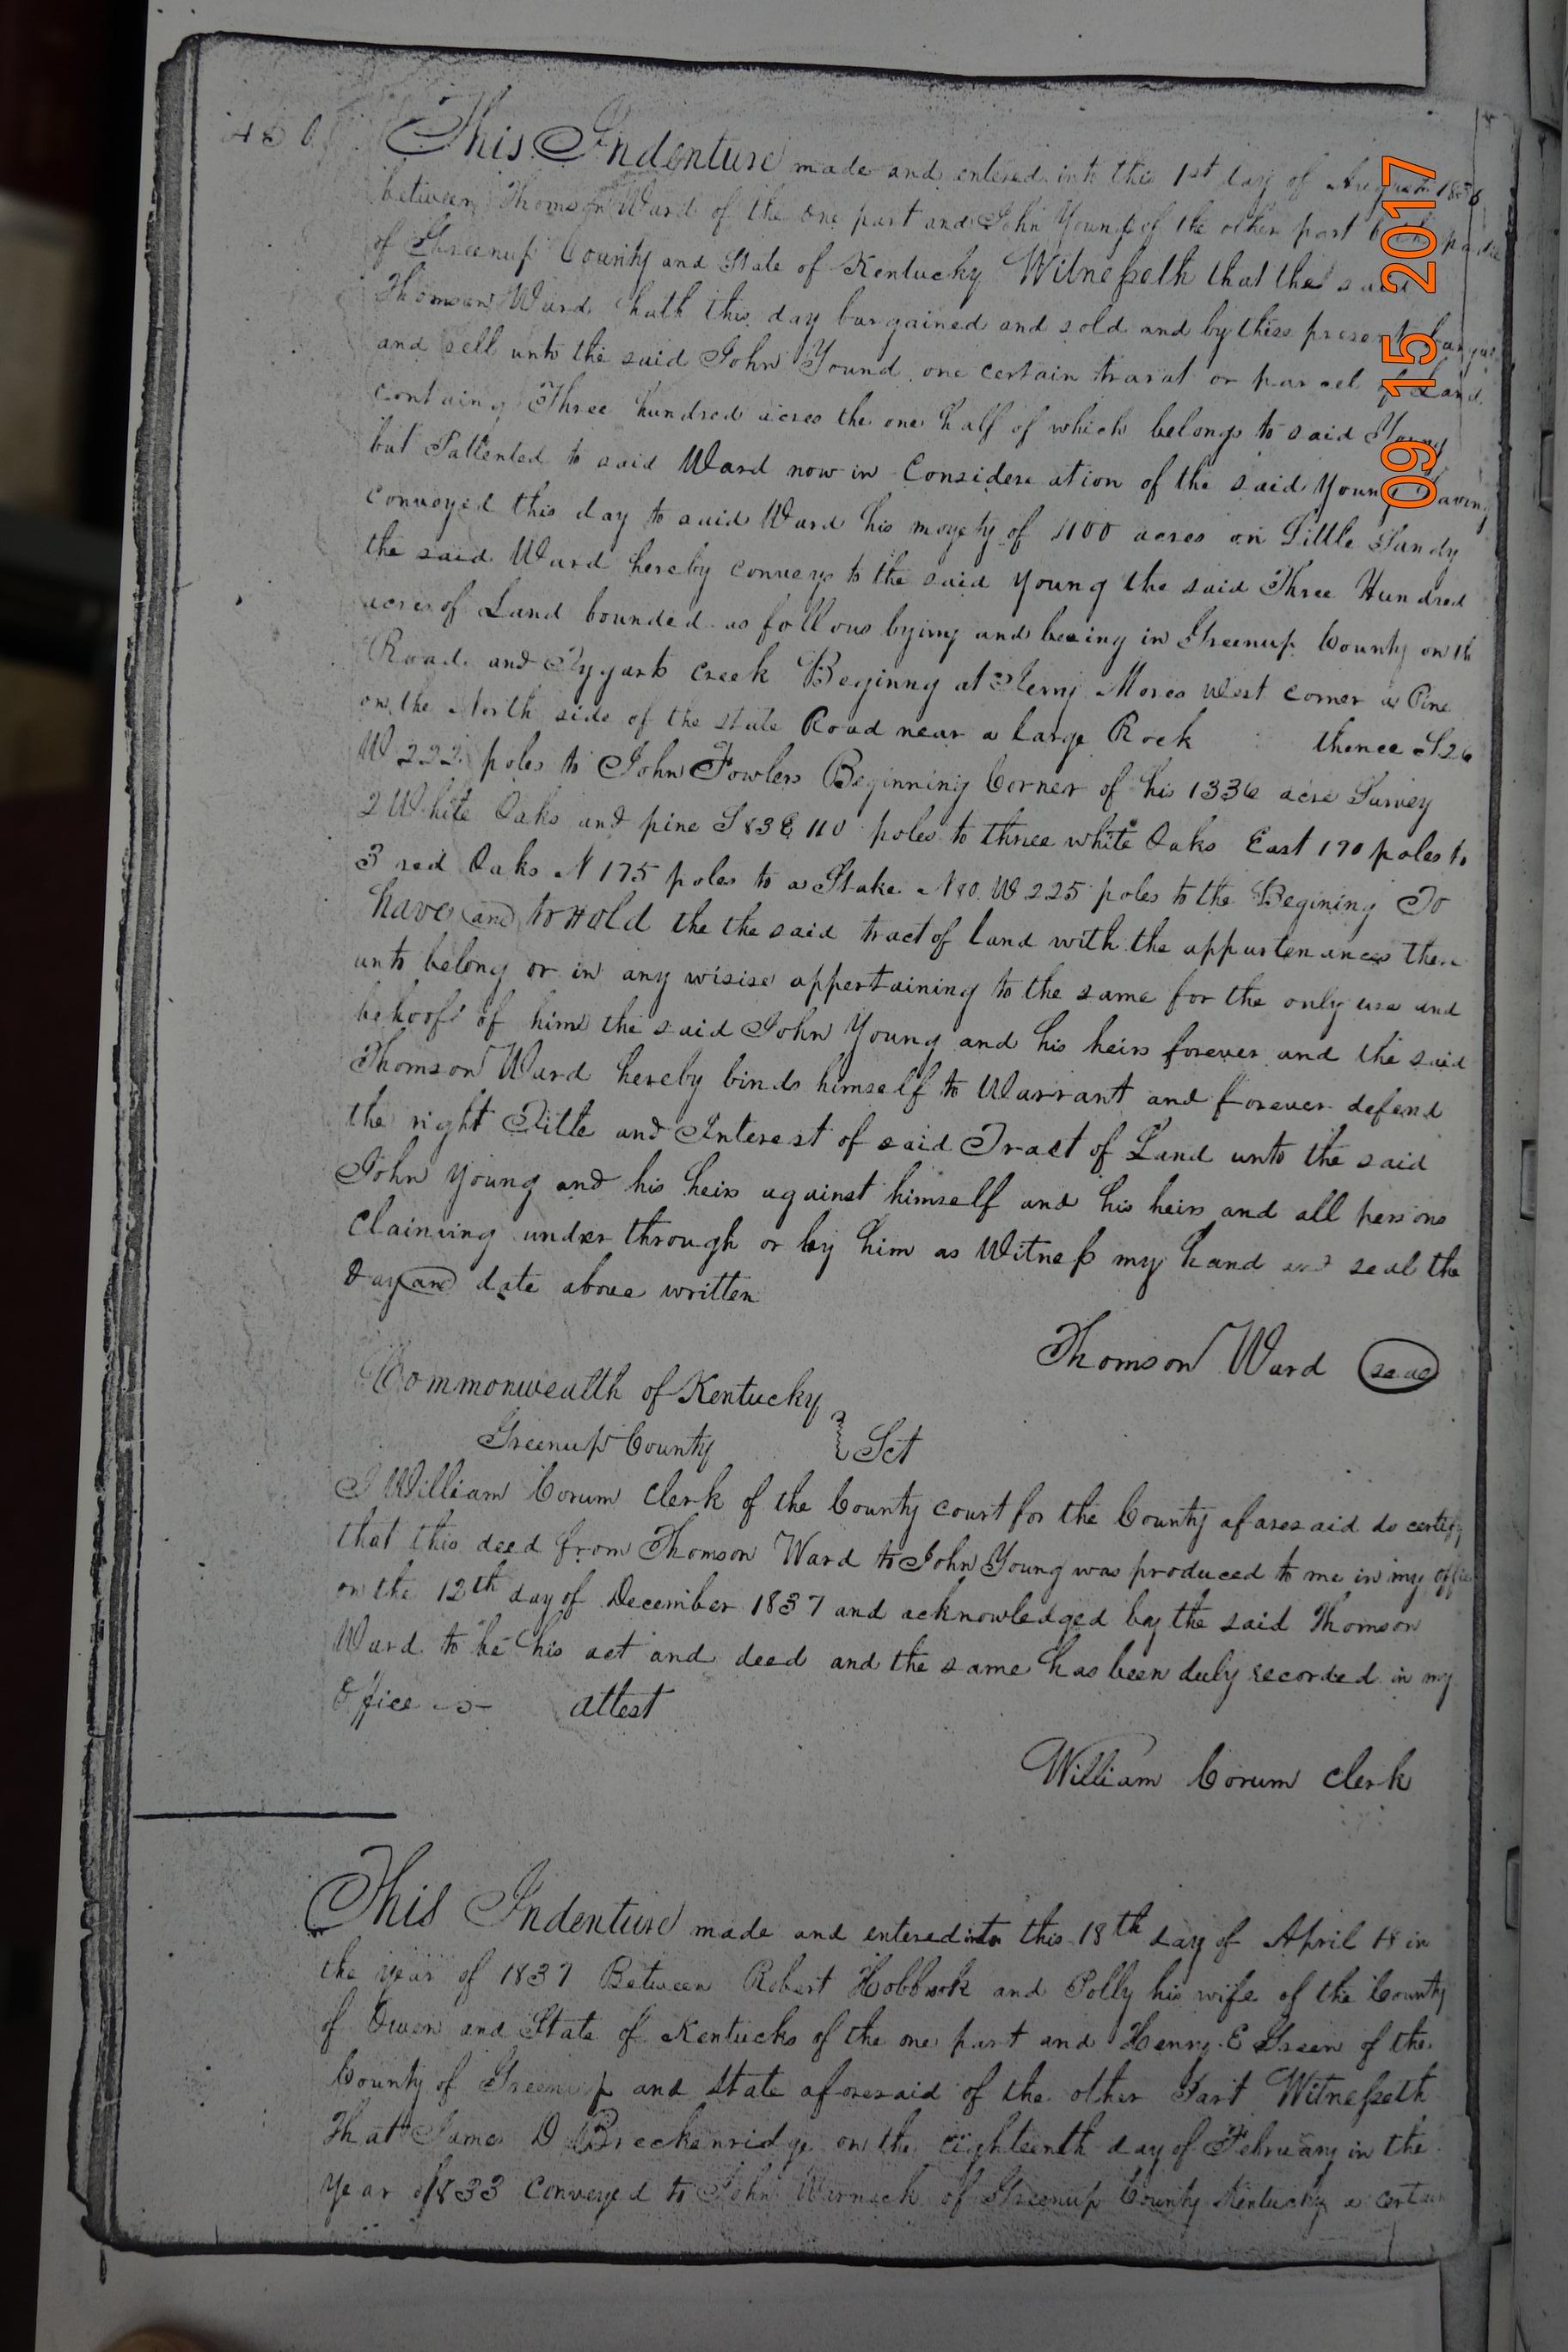 450
This Indenture made and entered into this 1st day of August
between Thomson Ward of the one part and John Young of the other part both
of Greenup County and State of Kentucky Witnesseth that the said
Thomson Ward hath this day bargained and sold and by these presents
and sell unto the said John Yound one certain trarat or parcel of Land
containg Three hundred acres the one half of which belongs to said Young
but Pattented to said Ward now in Considere ation of the said Young having
conveyed this day to said Ward his moyety of 400 acres on Little Sandy
the said Ward hereby conveys to the said Young the said Three Hundred
acres of Land bounded as follows lying and beeing in Greenup County on th
Road and Tygarts Creek Beginng at Mores West corner a Pine
on the North side of the state Road near a large Rock thence S26
W 222 poles to John Fowlers Beginning Corner of his 1336 acre Survey
2 White Oaks and pine S83E 110 poles to three white Oaks East 190 poles to
3 red Oaks N 175 poles to a Stake N80 W 225 poles to the Begining To
have and to Hold the the said tract of land with the appurtenances there
unto belong or in any wisise appertaining to the same for the only use and
behoof of him the said John Young and his heirs forever and the said
Thomson Ward hereby binds himself to Warrant and forever defend
the right Title and Interest of said Tract of Land unto the said
John Young and his heirs against himself and his heirs and all persons
claiming under through or by him as Witness my hand and seal the
day and date above written
Thomson Ward seal
Commonwealth of Kentucky
Greenup County } Sct
I William Corum Clerk of the County court for the County afaresaid do certify
that this deed from Thomson Ward to John Young was produced to me in my office
on the 12th day of December 1837 and acknowledged by the said Thomson
Ward to be his act and deed and the same has been duly recorded in my
Office attest
William Corum Clerk
This Indenture made and entered into this 18th day of April 18 in
the year of 1837 Between Robert and Polly his wife of the County
of Owen and State of Kentucks of the one part and Henry E Green of the
County of Greenup and State aforesaid of the other Part Witnesseth
That James D Breckenridge on the eighteenth day of February in the
year of 1833 conveyed to John Warnock of Greenup County Kentucky a certain
09 15 2017